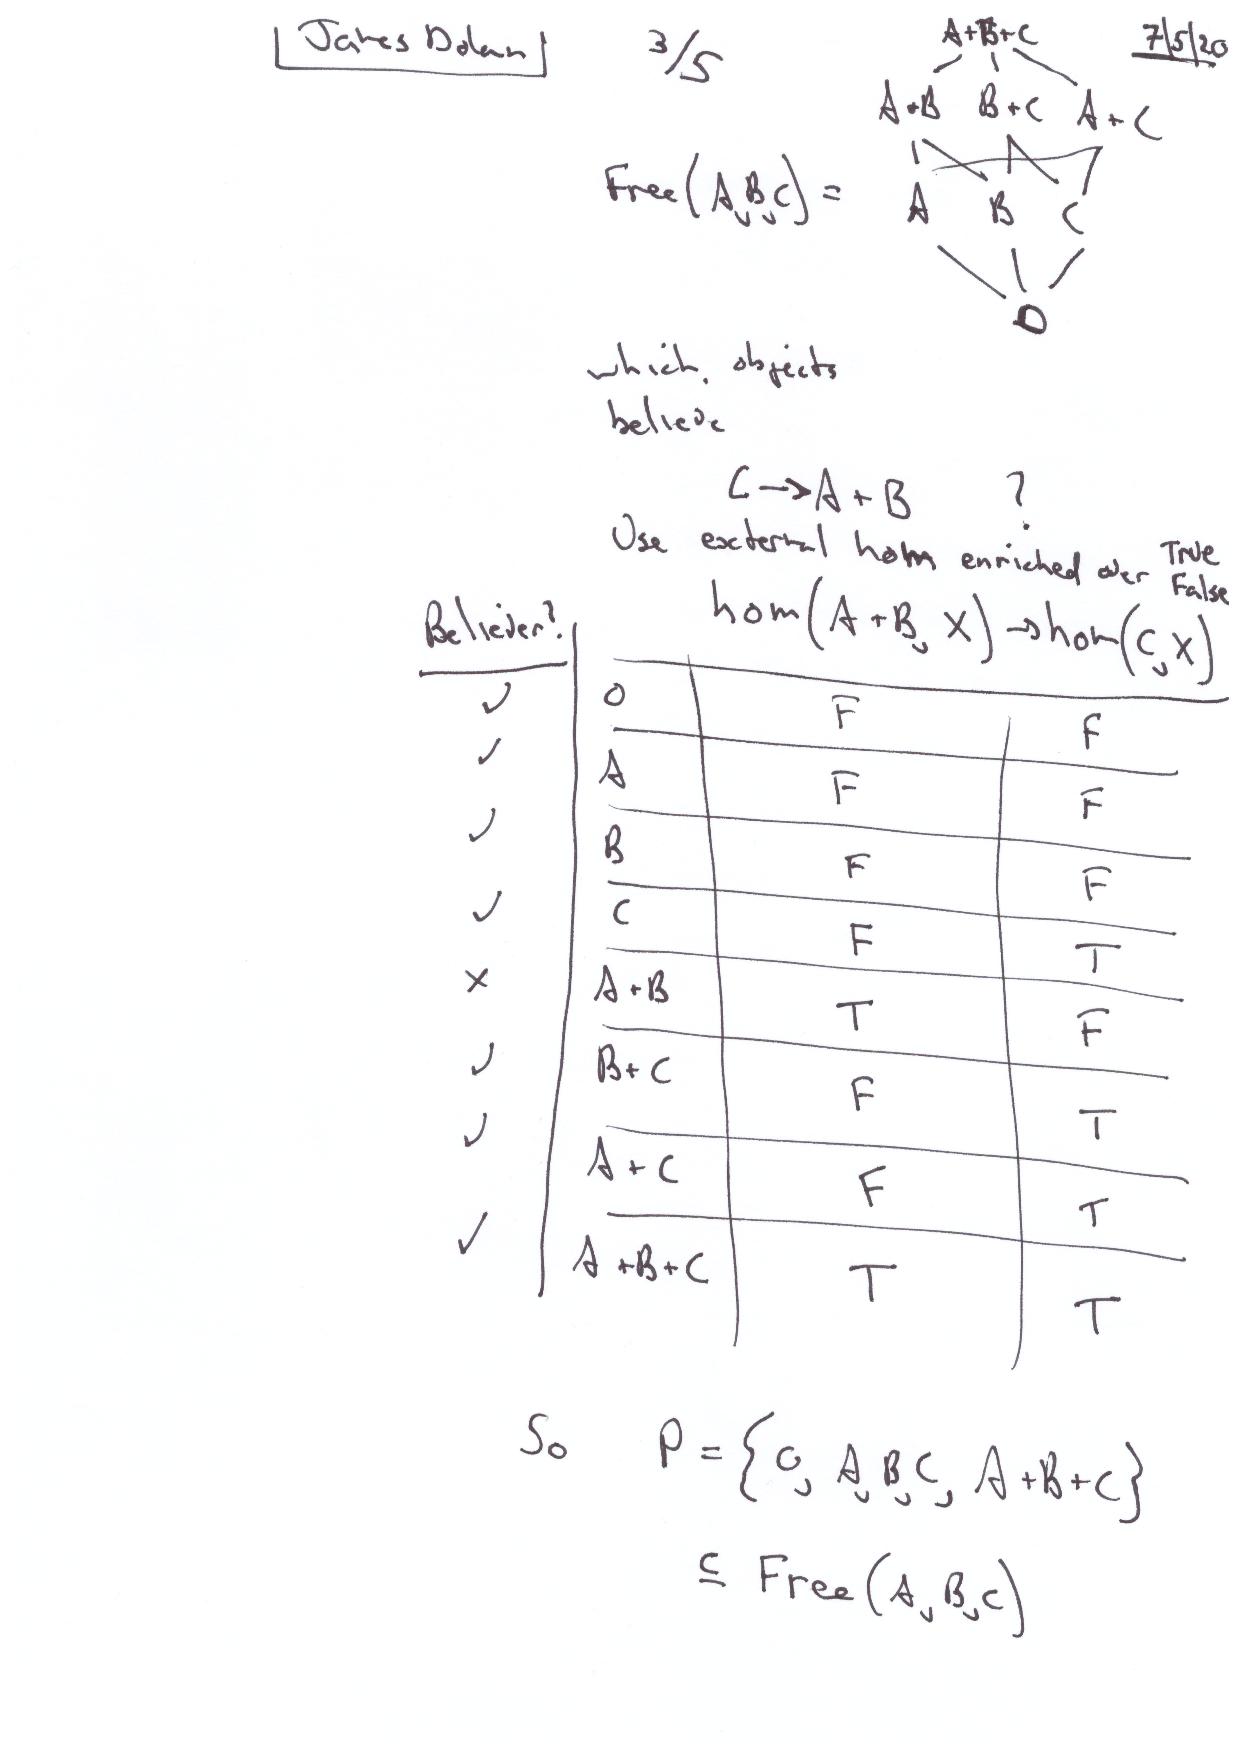 James Dolan 3/5 7/5/20
A+B+C
A+B B+C A+C
Free(A,B,C) = A B C
0
which objects
believe
C → A + B ?
Use external hom enriched over True False
Believer? hom(A+B, X) → hom(C, X)
✓ 0 F F
✓ A F F
✓ B F F
✓ C F T
× A+B T F
✓ B+C F T
✓ A+C F T
✓ A+B+C T T
So P = {0, A, B, C, A+B+C}
⊆ Free(A, B, C)